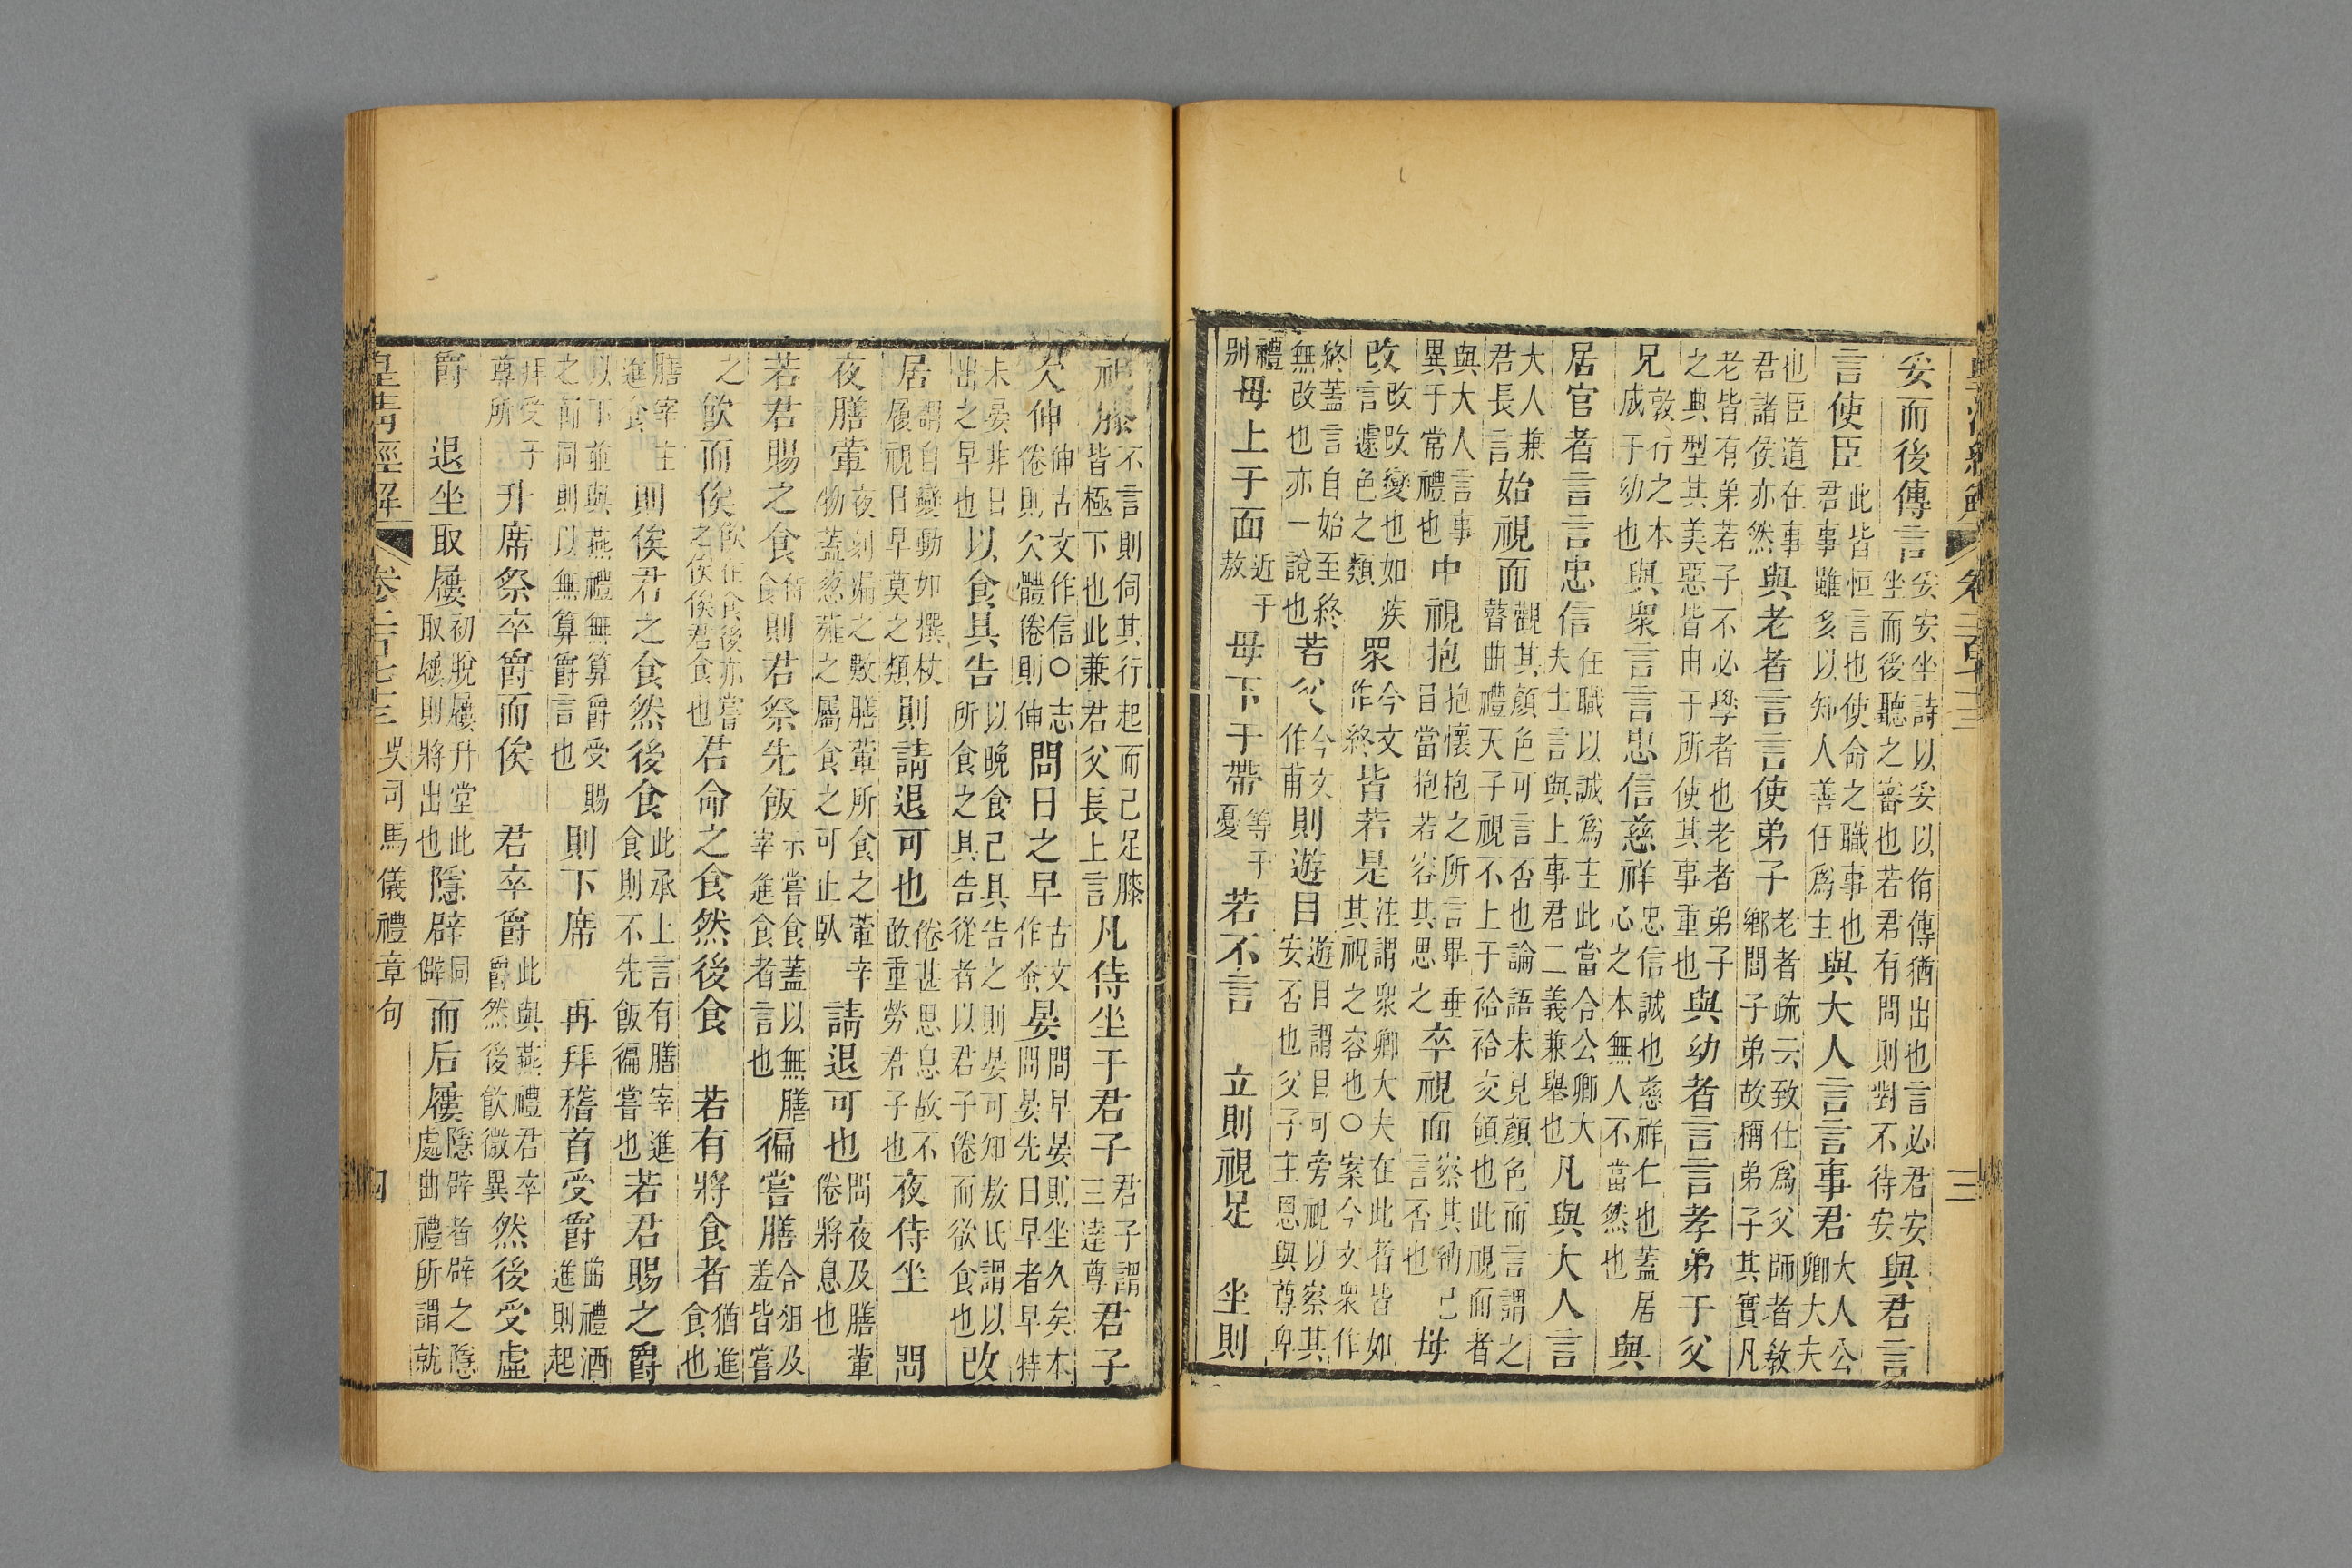 皇清經解 卷二百七十三 三
妥而後傳言妥安坐詩以妥以侑傳猶出也言必君安坐而後聽之審也若君有問則對不待安與君言
言使臣此皆恒言也使命之職事也君事雖多以知人善任爲主與大人言言事君大人公卿大夫
也臣道在事君諸侯亦然與老者言言使弟子老者疏云致仕爲父師者敎鄉閭子弟故稱弟子其實凡
老皆有弟若子不必學者也老者弟子之典型其美惡皆由于所使其事重也與幼者言言孝弟于父
兄敦行之本成于幼也與衆言言忠信慈祥忠信誠也慈祥仁也蓋居心之本無人不當然也與
居官者言言忠信任職以誠爲主此當合公卿大夫士言與上事君二義兼舉也凡與大人言
大人兼君長言始視面觀其顏色可言否也論語未見顏色而言謂之瞽曲禮天子視不上于袷袷交領也此視面者
與大人言事異于常禮也中視抱抱懷抱之所言畢垂目當抱若容其思之卒視面察其納己言否也毋
改改改變也如疾言遽色之類眾今文作終皆若是注謂衆卿大夫在此者皆如其視之容也○案今文衆作
終蓋言自始至終無改也亦一說也若父今文作甫則遊目遊目謂目可旁視以察其安否也父子主恩與尊卑
禮别毋上于面近于敖毋下于帶等于憂若不言 立則視足 坐則
視膝不言則伺其行起而已足膝皆極下也此兼君父長上言凡侍坐于君子君子謂三達尊君子
欠伸伸古文作信○志倦則欠體倦則伸問日之早古文作蚤晏問早晏則坐久矣本問晏先日早者早特
未晏非日出之早也以食具告以晚食已具告之則晏可知敖氏謂以所食之具告從者以君子倦而欲食也改
居謂自變動如撰杖履視日早莫之類則請退可也倦甚思息故不敢重勞君子也夜侍坐 問
夜膳葷夜刻漏之數膳葷所食之葷辛物蓋葱薤之屬食之可止臥請退可也問夜及膳葷倦將息也
若君賜之食侍食則君祭先飯示嘗食蓋以無膳宰進食者言也徧嘗膳合俎及羞皆嘗
之飲而俟飲在食後亦嘗者俟俟君食也君命之食然後食 若有將食者猶進食也
膳宰主進食則俟君之食然後食此承上言有膳宰進食則不先飯徧嘗也若君賜之爵
以下並與燕禮無算爵受賜之節同則以無算爵言也則下席 再拜稽首受爵曲禮酒進則起
拜受于尊所升席祭卒爵而俟 君卒爵此與燕禮君卒爵然後飲微異然後受虛
爵 退坐取屨初脫屨升堂此取屨則將出也隱辟同僻而后屨隱辟者辟之隱處曲禮所謂就
皇清經解 卷二百七十三 吳司馬儀禮章句 四